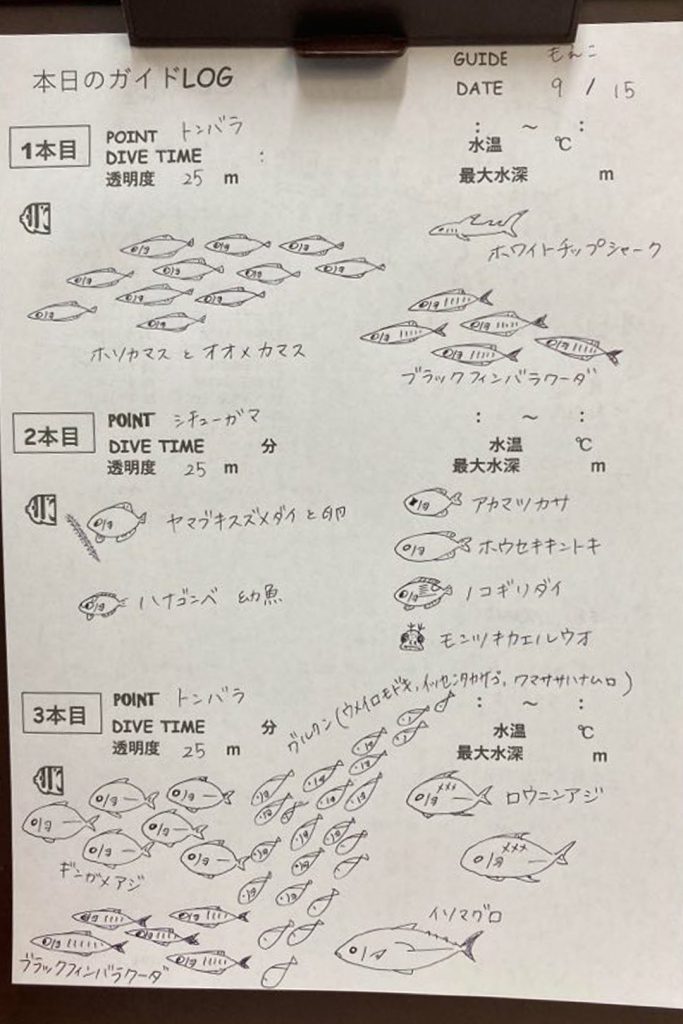 本日のガイドLOG
GUIDE もんこ
DATE 9 / 15
1本目
POINT トンバラ
: ～ :
DIVE TIME :
水温 ℃
透明度 25 m
最大水深 m
ホワイトチップシャーク
ホソカマス と オオメカマス
ブラックフィンバラクーダ
2本目
POINT シチューガマ
: ～ :
DIVE TIME 分
水温 ℃
透明度 25 m
最大水深 m
ヤマブキスズメダイと卵
アカマツカサ
ホウセキキントキ
ハナゴンベ 幼魚
ノコギリダイ
モンツキカエルウオ
3本目
POINT トンバラ
: ～ :
DIVE TIME 分
水温 ℃
透明度 25 m
最大水深 m
グルクン(ウメイロモドキ,イッセンタカサゴ,クマササハナムロ)
ロウニンアジ
ギンガメアジ
イソマグロ
ブラックフィンバラクーダ